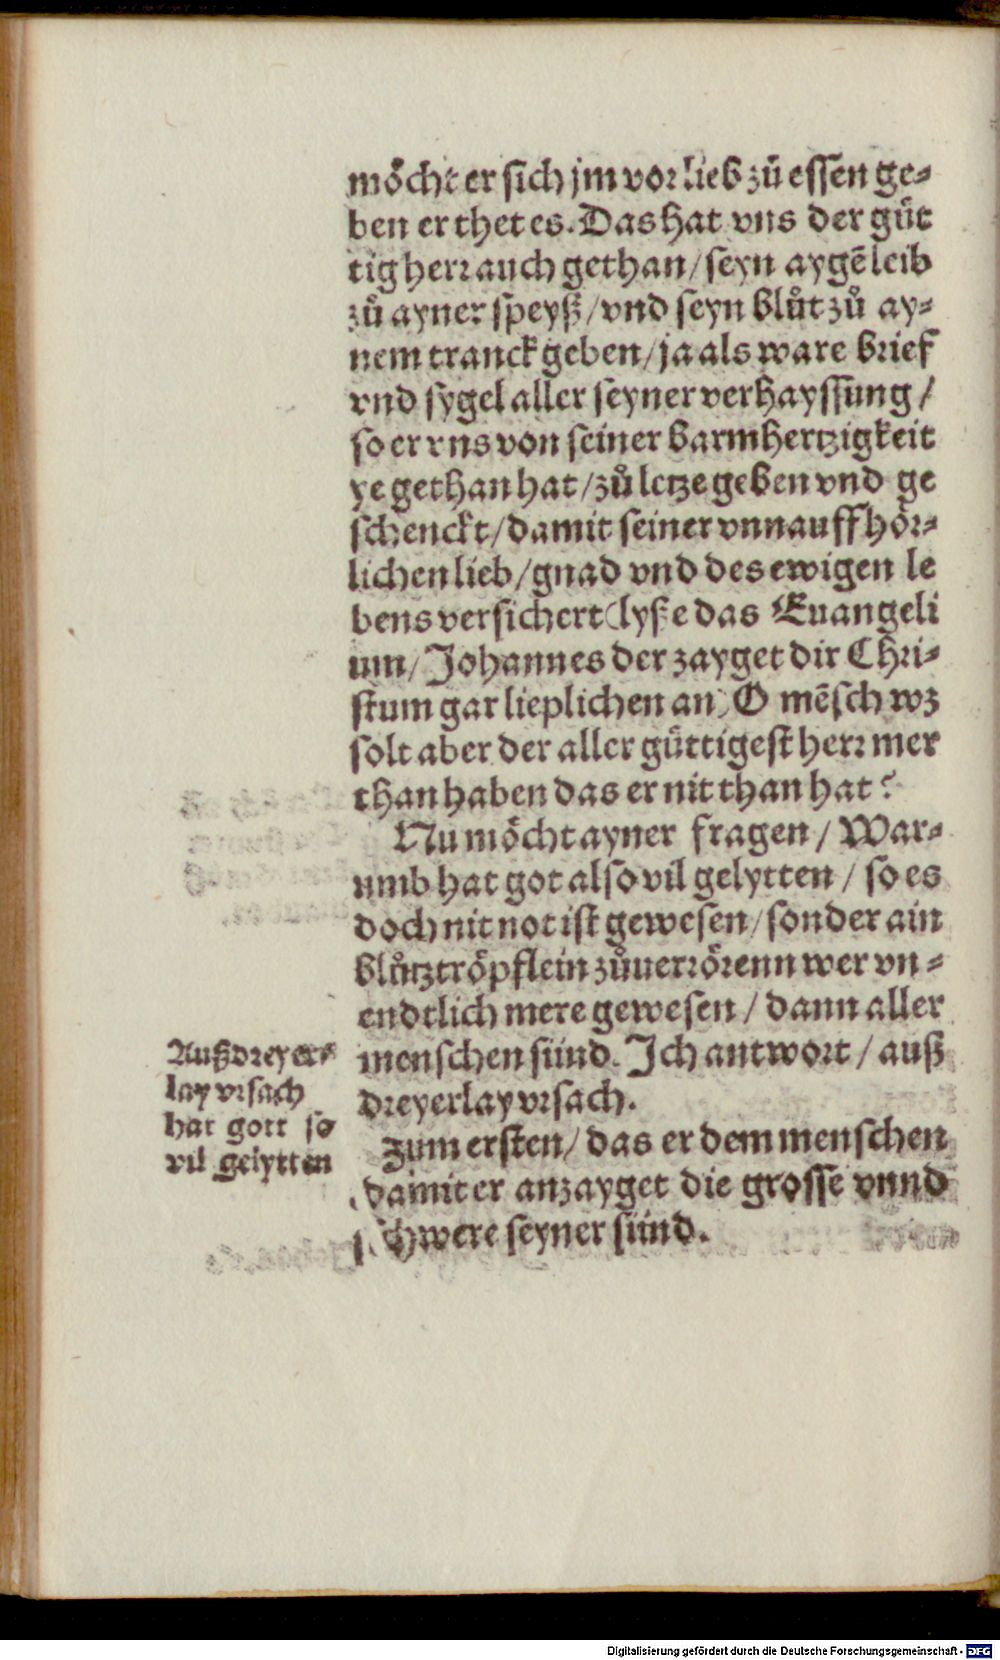 möcht er sich jm vor lieb zů essen ge⸗
ben er thet es. Das hat vns der güt
tig herr auch gethan / seyn aygẽ leib
zů ayner speyß / vnd seyn blůt zů ay⸗
nem tranck geben / ja als ware brief
vnd sygel aller seyner verhayssung /
so er vns von seiner barmhertzigkeit
ye gethan hat / zů letze geben vnd ge
schenckt / damit seiner vnnauffhör⸗
lichen lieb / gnad vnd des ewigen le
bens versichert (lyße das Euangeli
um / Johannes der zayget dir Chri⸗
stum gar lieplichen an) O mẽsch wz
solt aber der aller güttigest herr mer
than haben das er nit than hat?
Nu möcht ayner fragen / War⸗
umb hat got also vil gelytten / so es
doch nit not ist gewesen / sonder ain
blůtztröpflein zůuerrörenn wer vn⸗
endtlich mere gewesen / dann aller
menschen sünd. Ich antwort / auß
dreyerlay vrsach.
Auß dreyer⸗
lay vrsach
hat gott so
vil gelytten
Zum ersten / das er dem menschen
damit er anzayget die grosse vnnd
schwere seyner sünd.
Digitalisierung gefördert durch die Deutsche Forschungsgemeinschaft - DFG